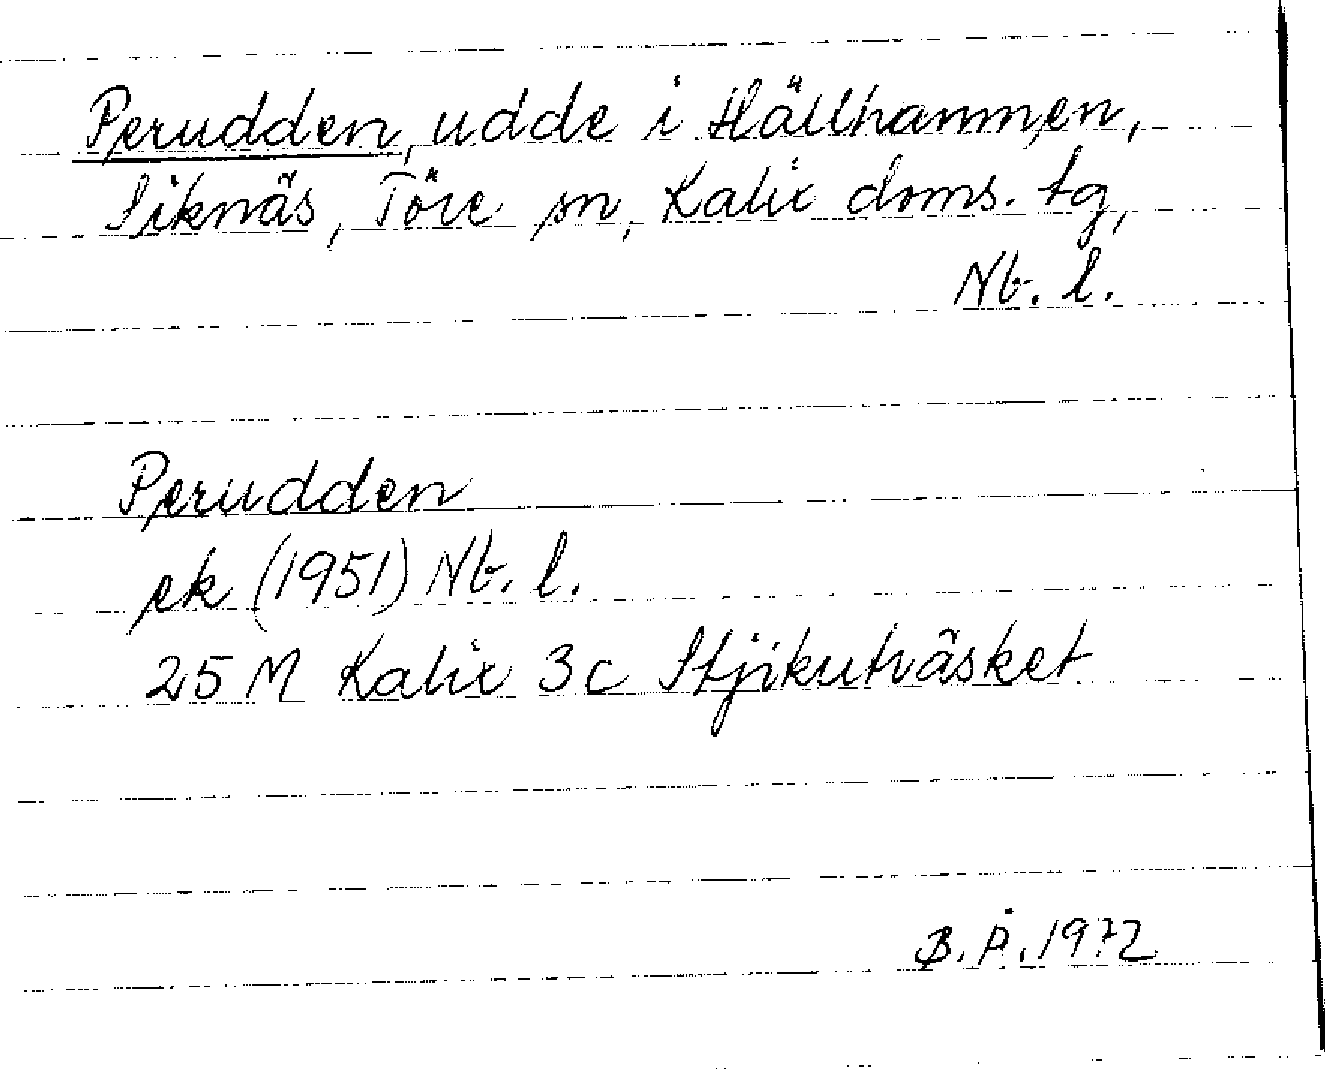 Perudden, udde i Hällhamnen,
Siknäs, Töre sn, Kalix doms. tg,
Nb. l.
Perudden
ek (1951) Nb. l.
25 M Kalix 3c Stjikuträsket
B. P. 1972